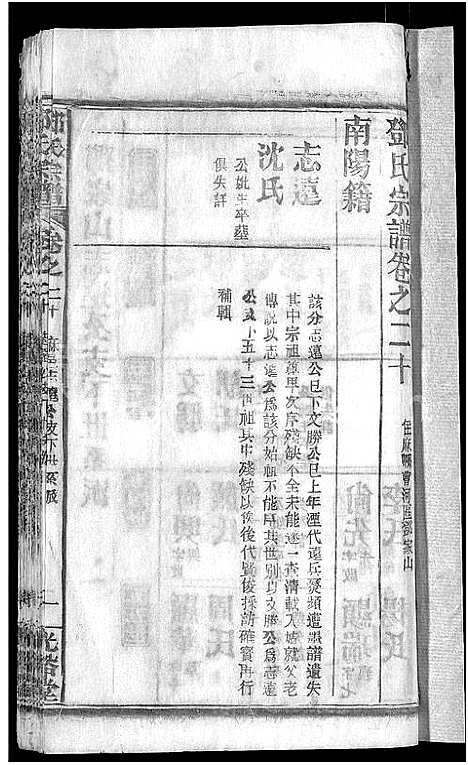 鄧氏宗譜卷之二十
住麻縣
南陽籍
志遠
公妣生卒塟
俱失詳
沈氏
該分志遠公已下文勝公已上年湮代遠兵燹頻遭譜遺失
其中宗祖尊卑次序殘缺不全未能逐一查清載入姑就父老
傳說以志遠公為該分始祖不能用共世別以文勝公為志遠
公支下五十三世祖其中殘缺以俟後代賢俊採訪確實再行
補輯
鄧氏宗譜
卷之二十
一
光裕堂